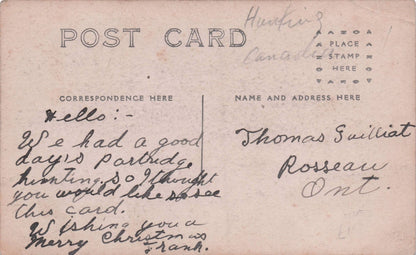 POST CARD
Hunting
Canadian
PLACE
STAMP
HERE
CORRESPONDENCE HERE
Hello:-
We had a good
day's Partridge
hunting, so I thought
you would like to see
this card.
Wishing you a
Merry Christmas
Frank.
NAME AND ADDRESS HERE
Thomas Guilliat
Rosseau
Ont.